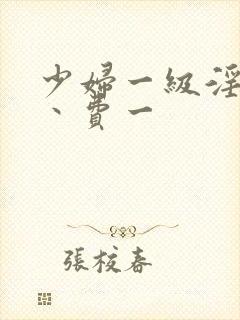 少婦一級淫
、費一
張校春